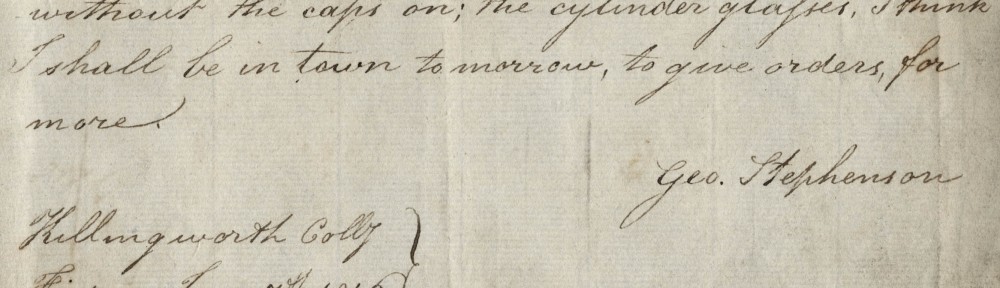 without the caps on; the cylinder glasses, I think
I shall be in town to morrow, to give orders, for
more.
Geo. Stephenson
Killingworth Colly